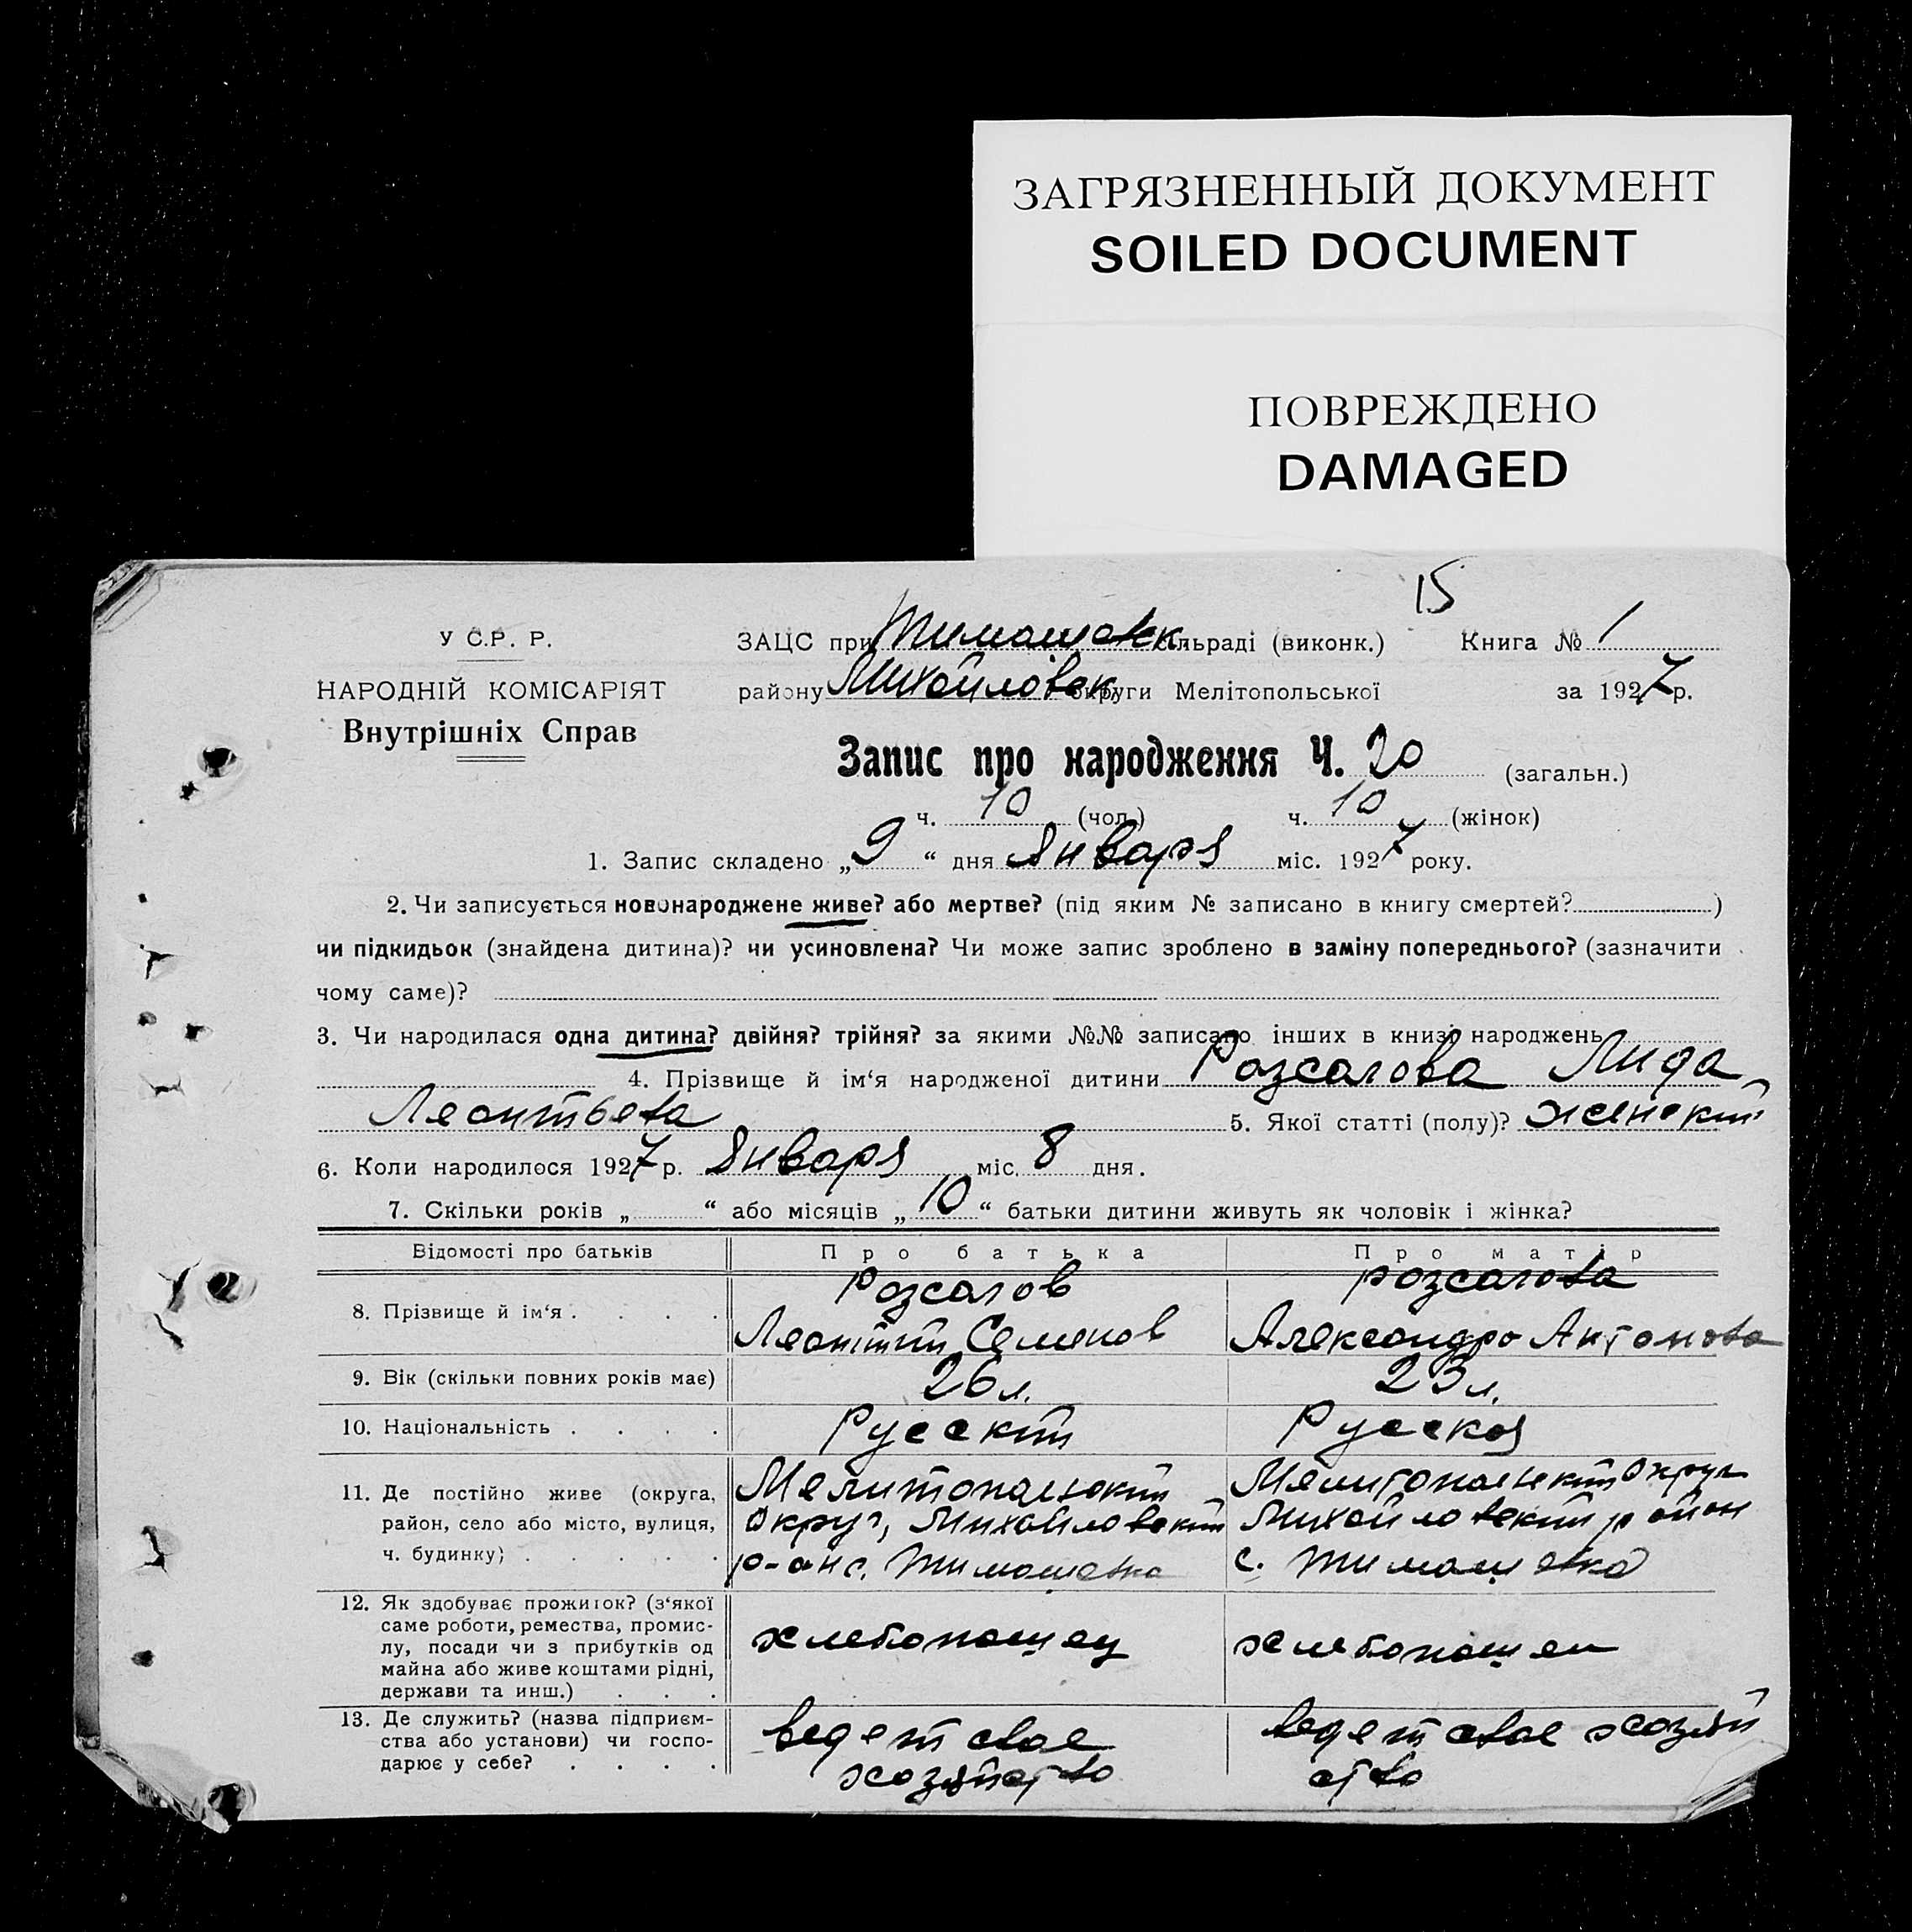 ЗАГРЯЗНЕННЫЙ ДОКУМЕНТ
SOILED DOCUMENT
ПОВРЕЖДЕНО
DAMAGED
15
У С.Р. Р.
НАРОДНІЙ КОМІСАРІЯТ
Внутрішніх Справ
ЗАЦС при Тимашовск. сільраді (виконк.) Книга № 1
району Михайловск. округи Мелітопольської за 1927 р.
Запис про народження Ч. 20 (загальн.)
ч. 10 (чол.) ч. 10 (жінок)
1. Запис складено „9“ дня Января міс. 1927 року.
2. Чи записується новонароджене живе? або мертве? (під яким № записано в книгу смертей? )
чи підкидьок (знайдена дитина)? чи усиновлена? Чи може запис зроблено в заміну попереднього? (зазначити
чому саме)?
3. Чи народилася одна дитина? двійня? трійня? за якими №№ записано інших в книзі народжень
4. Прізвище й ім‘я народженої дитини Розсалова Лида
Леонтьева 5. Якої статті (полу)? женский
6. Коли народилося 1927 р. Января міс. 8 дня.
7. Скільки років „ “ або місяців „10“ батьки дитини живуть як чоловік і жінка?
Відомості про батьків Про батька Про матір
8. Прізвище й ім‘я . . . . Розсалов Леонтий Семенов Розсалова Александра Антонова
9. Вік (скільки повних років має) 26 л. 23 л.
10. Національність . . . . Русский Русская
11. Де постійно живе (округа, Мелитопольский Мелитопольский Округ
район, село або місто, вулиця, Округ, Михайловский Михайловский район
ч. будинку) . . . . . р-он с. Тимашовка с. Тимашовка
12. Як здобуває прожиток? (з‘якої
саме роботи, ремества, промис-
лу, посади чи з прибутків од хлебопашец хлебопашец
майна або живе коштами рідні,
держави та инш.) . . .
13. Де служить? (назва підприєм- ведет свое ведет свое хозяй
ства або установи) чи госпо- хозяйство ство
дарює у себе? . . . .